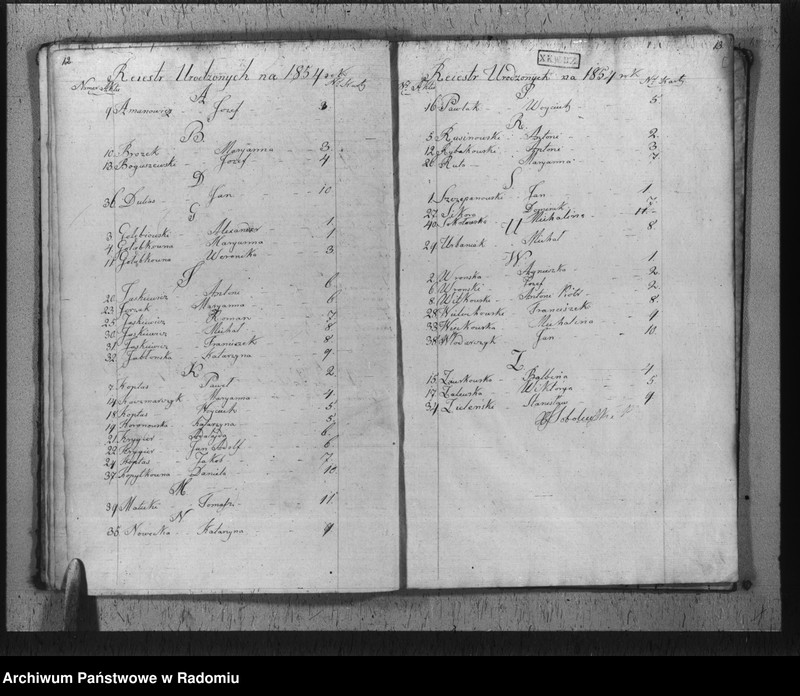 12
Reiestr Urodzonych na 1854 rok
Numer Aktu No Karty
A
9 Amanowicz Jozef 3
B
10 Brozek Maryanna 3
13 Boguszewski Jozef 4
D
36 Dulas Jan 10
G
3 Gołębiowski Alexander 1
4 Gołąbkowna Maryanna 1
11 Gołąbkowna Weronika 3
J
20 Jaskiewicz Antoni 6
23 Jorzak Maryanna 6
25 Jaskiewicz Roman 7
30 Jaskiewicz Michał 8
31 Jaskiewicz Franciszek 8
32 Jabłonska Katarzyna 9
K
7 Koptas Paweł 2
14 Kaczmarczyk Maryanna 4
18 Koptas Woyciech 5
19 Katarzyna 5
21 Krygier 6
22 Krygier Jan 6
24 Koptas Jakob 7
37 Kopytkowna Daniela 10
M
39 Malecki Tomasz 11
N
35 Nowecka Katarzyna 9
13
Reiestr Urodzonych na 1854 rok
No Aktu No Karty
P
16 Pawlak Woyciech 5
R
5 Rusinowski Antoni 2
12 Rybakowski Antoni 3
26 Ruta Maryanna 7
S
1 Szczepanowski Jan 1
27 Sikora Dominik 7
40 Sokołowska Michalina 11
U
29 Urbaniak Michał 8
W
2 Wronska Agnieszka 1
6 Wronski Jozef 2
8 Witkowski Antoni Piotr 2
28 Franciszek 8
33 Michalina 9
38 Włodarczyk Jan 10
Z
15 Zawkowska Balbina 4
17 Zalewska Wiktorya 5
34 Zieleński Stanisław 9
Archiwum Państwowe w Radomiu